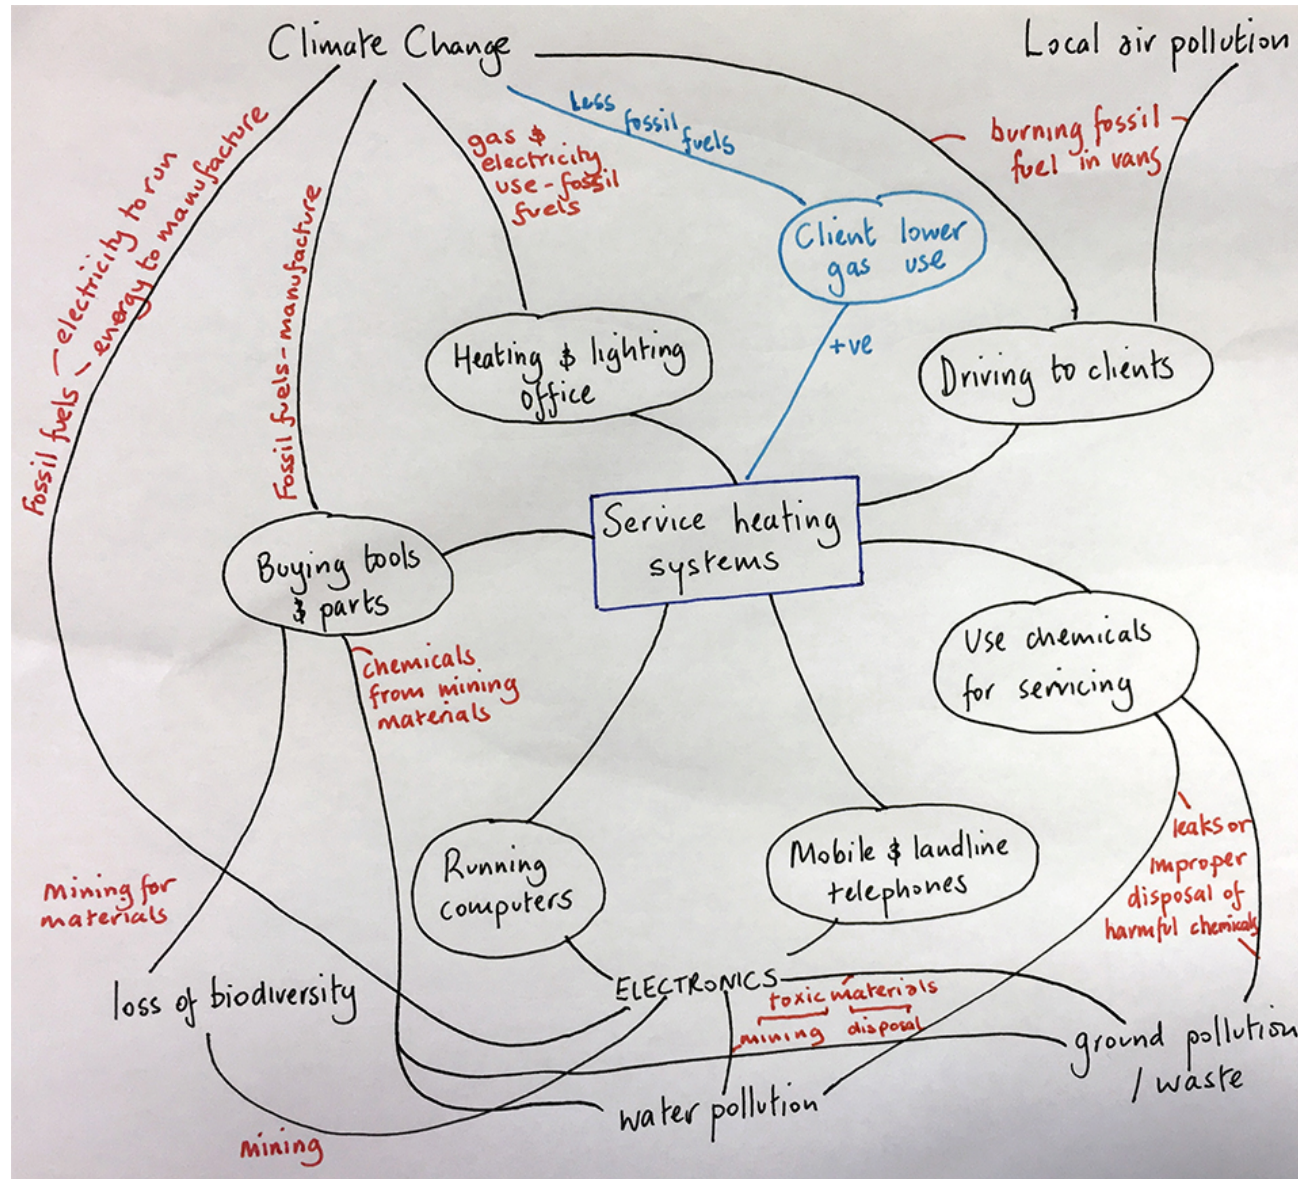 Climate Change
Local air pollution
Less fossil fuels
burning fossil
fuel in vans
gas &
electricity
use - fossil
fuels
Fossil fuels
electricity to run
energy to manufacture
Fossil fuels - manufacture
Client lower
gas use
+ve
Heating & lighting
office
Driving to clients
Service heating
systems
Buying tools
& parts
Use chemicals
for servicing
chemicals
from mining
materials
Running
computers
Mobile & landline
telephones
leaks or
improper
disposal of
harmful chemicals
mining for
materials
loss of biodiversity
ELECTRONICS
toxic materials
mining disposal
ground pollution
/ waste
water pollution
mining